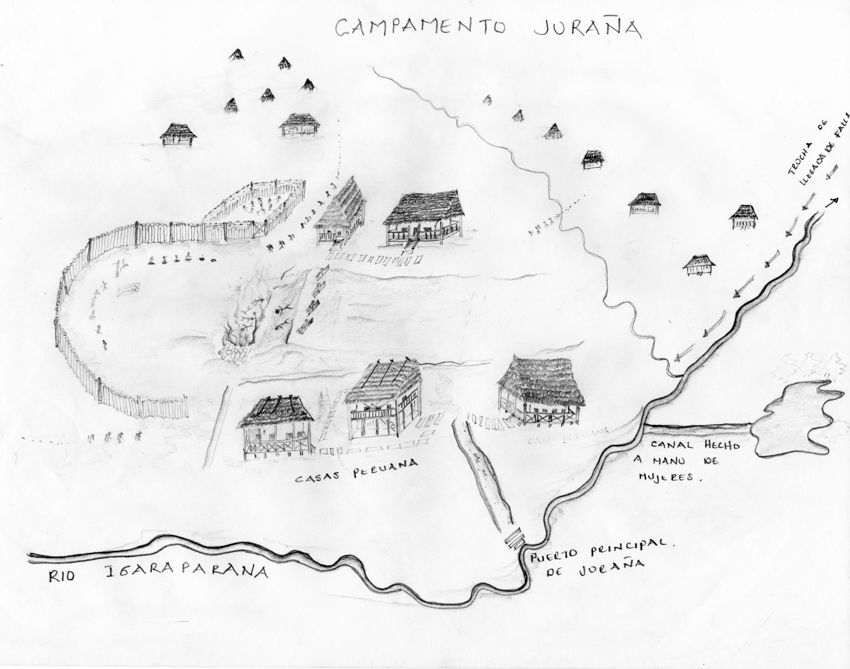 CAMPAMENTO JURAÑA
TROCHA DE
LLEGADA DE
CASA PERUANA
CASAS PERUANA
CANAL HECHO
A MANO DE
MUJERES.
PUERTO PRINCIPAL.
DE JURAÑA
RIO IGARAPARANA